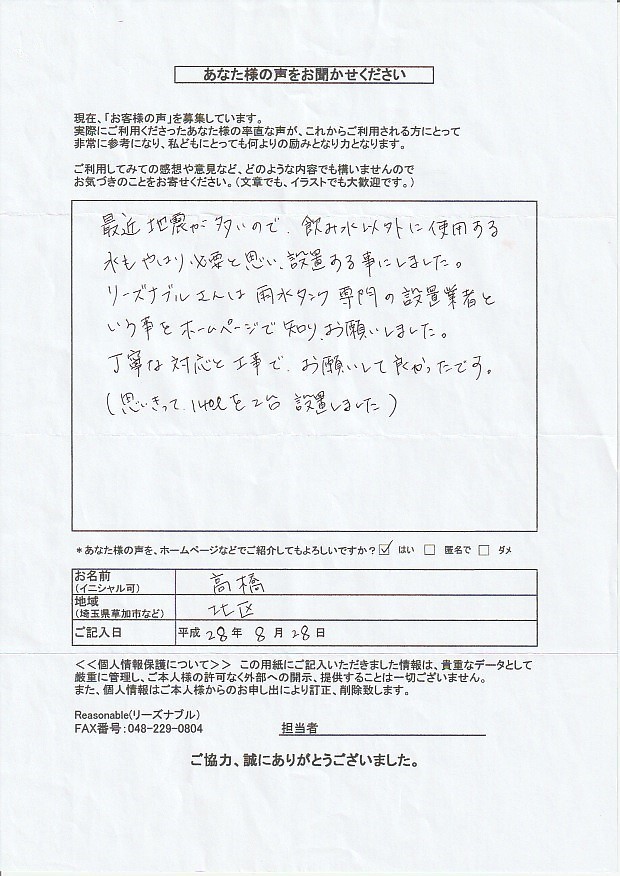 あなた様の声をお聞かせください
現在、「お客様の声」を募集しています。
実際にご利用くださったあなた様の率直な声が、これからご利用される方にとって
非常に参考になり、私どもにとっても何よりの励みとなり力となります。
ご利用してみての感想や意見など、どのような内容でも構いませんので
お気づきのことをお寄せください。(文章でも、イラストでも大歓迎です。)
最近地震が多いので、飲み水以外に使用する
水もやはり必要と思い、設置する事にしました。
リーズナブルさんは雨水タンク専門の設置業者と
いう事をホームページで知り、お願いしました。
丁寧な対応と工事で、お願いして良かったです。
(思いきって、140ℓを2台 設置しました)
*あなた様の声を、ホームページなどでご紹介してもよろしいですか? ☑ はい □ 匿名で □ ダメ
お名前
(イニシャル可) 高橋
地域
(埼玉県草加市など) 北区
ご記入日 平成 28 年 8 月 28 日
<<個人情報保護について>> この用紙にご記入いただきました情報は、貴重なデータとして
厳重に管理し、ご本人様の許可なく外部への開示、提供することは一切ございません。
また、個人情報はご本人様からのお申し出により訂正、削除致します。
Reasonable(リーズナブル)
FAX番号:048-229-0804 担当者
ご協力、誠にありがとうございました。